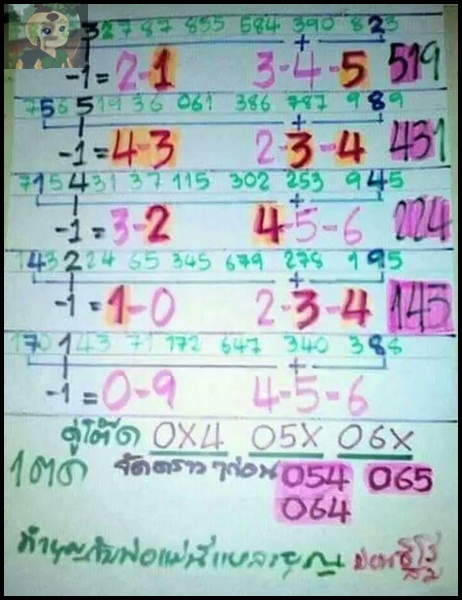 3 27 87 835 584 390 823
-1 = 2-1 3-4-5 519
756 519 36 061 386 787 989
-1 = 4-3 2-3-4 431
715 431 37 115 302 253 945
-1 = 3-2 4-5-6 224
143 224 65 345 679 278 195
-1 = 1-0 2-3-4 145
170 143 71 172 647 340 388
-1 = 0-9 4-5-6
คู่โต๊ด 0X4 05X 06X
จัดคราวๆก่อน 054 065
064